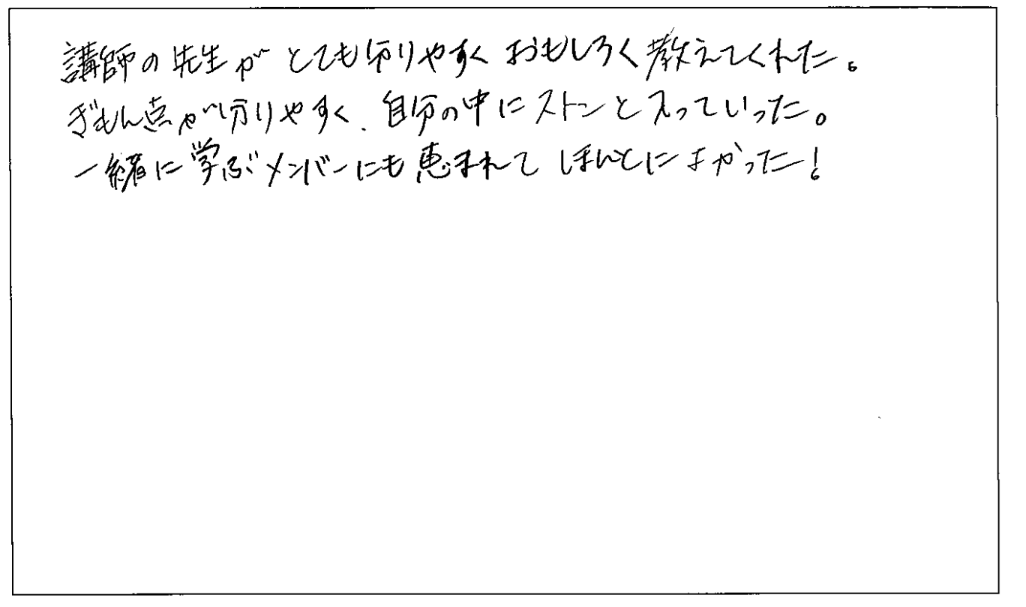 講師の先生がとても分りやすくおもしろく教えてくれた。
ぎもん点が分りやすく、自分の中にストンと入っていった。
一緒に学ぶメンバーにも恵まれてほんとによかった!